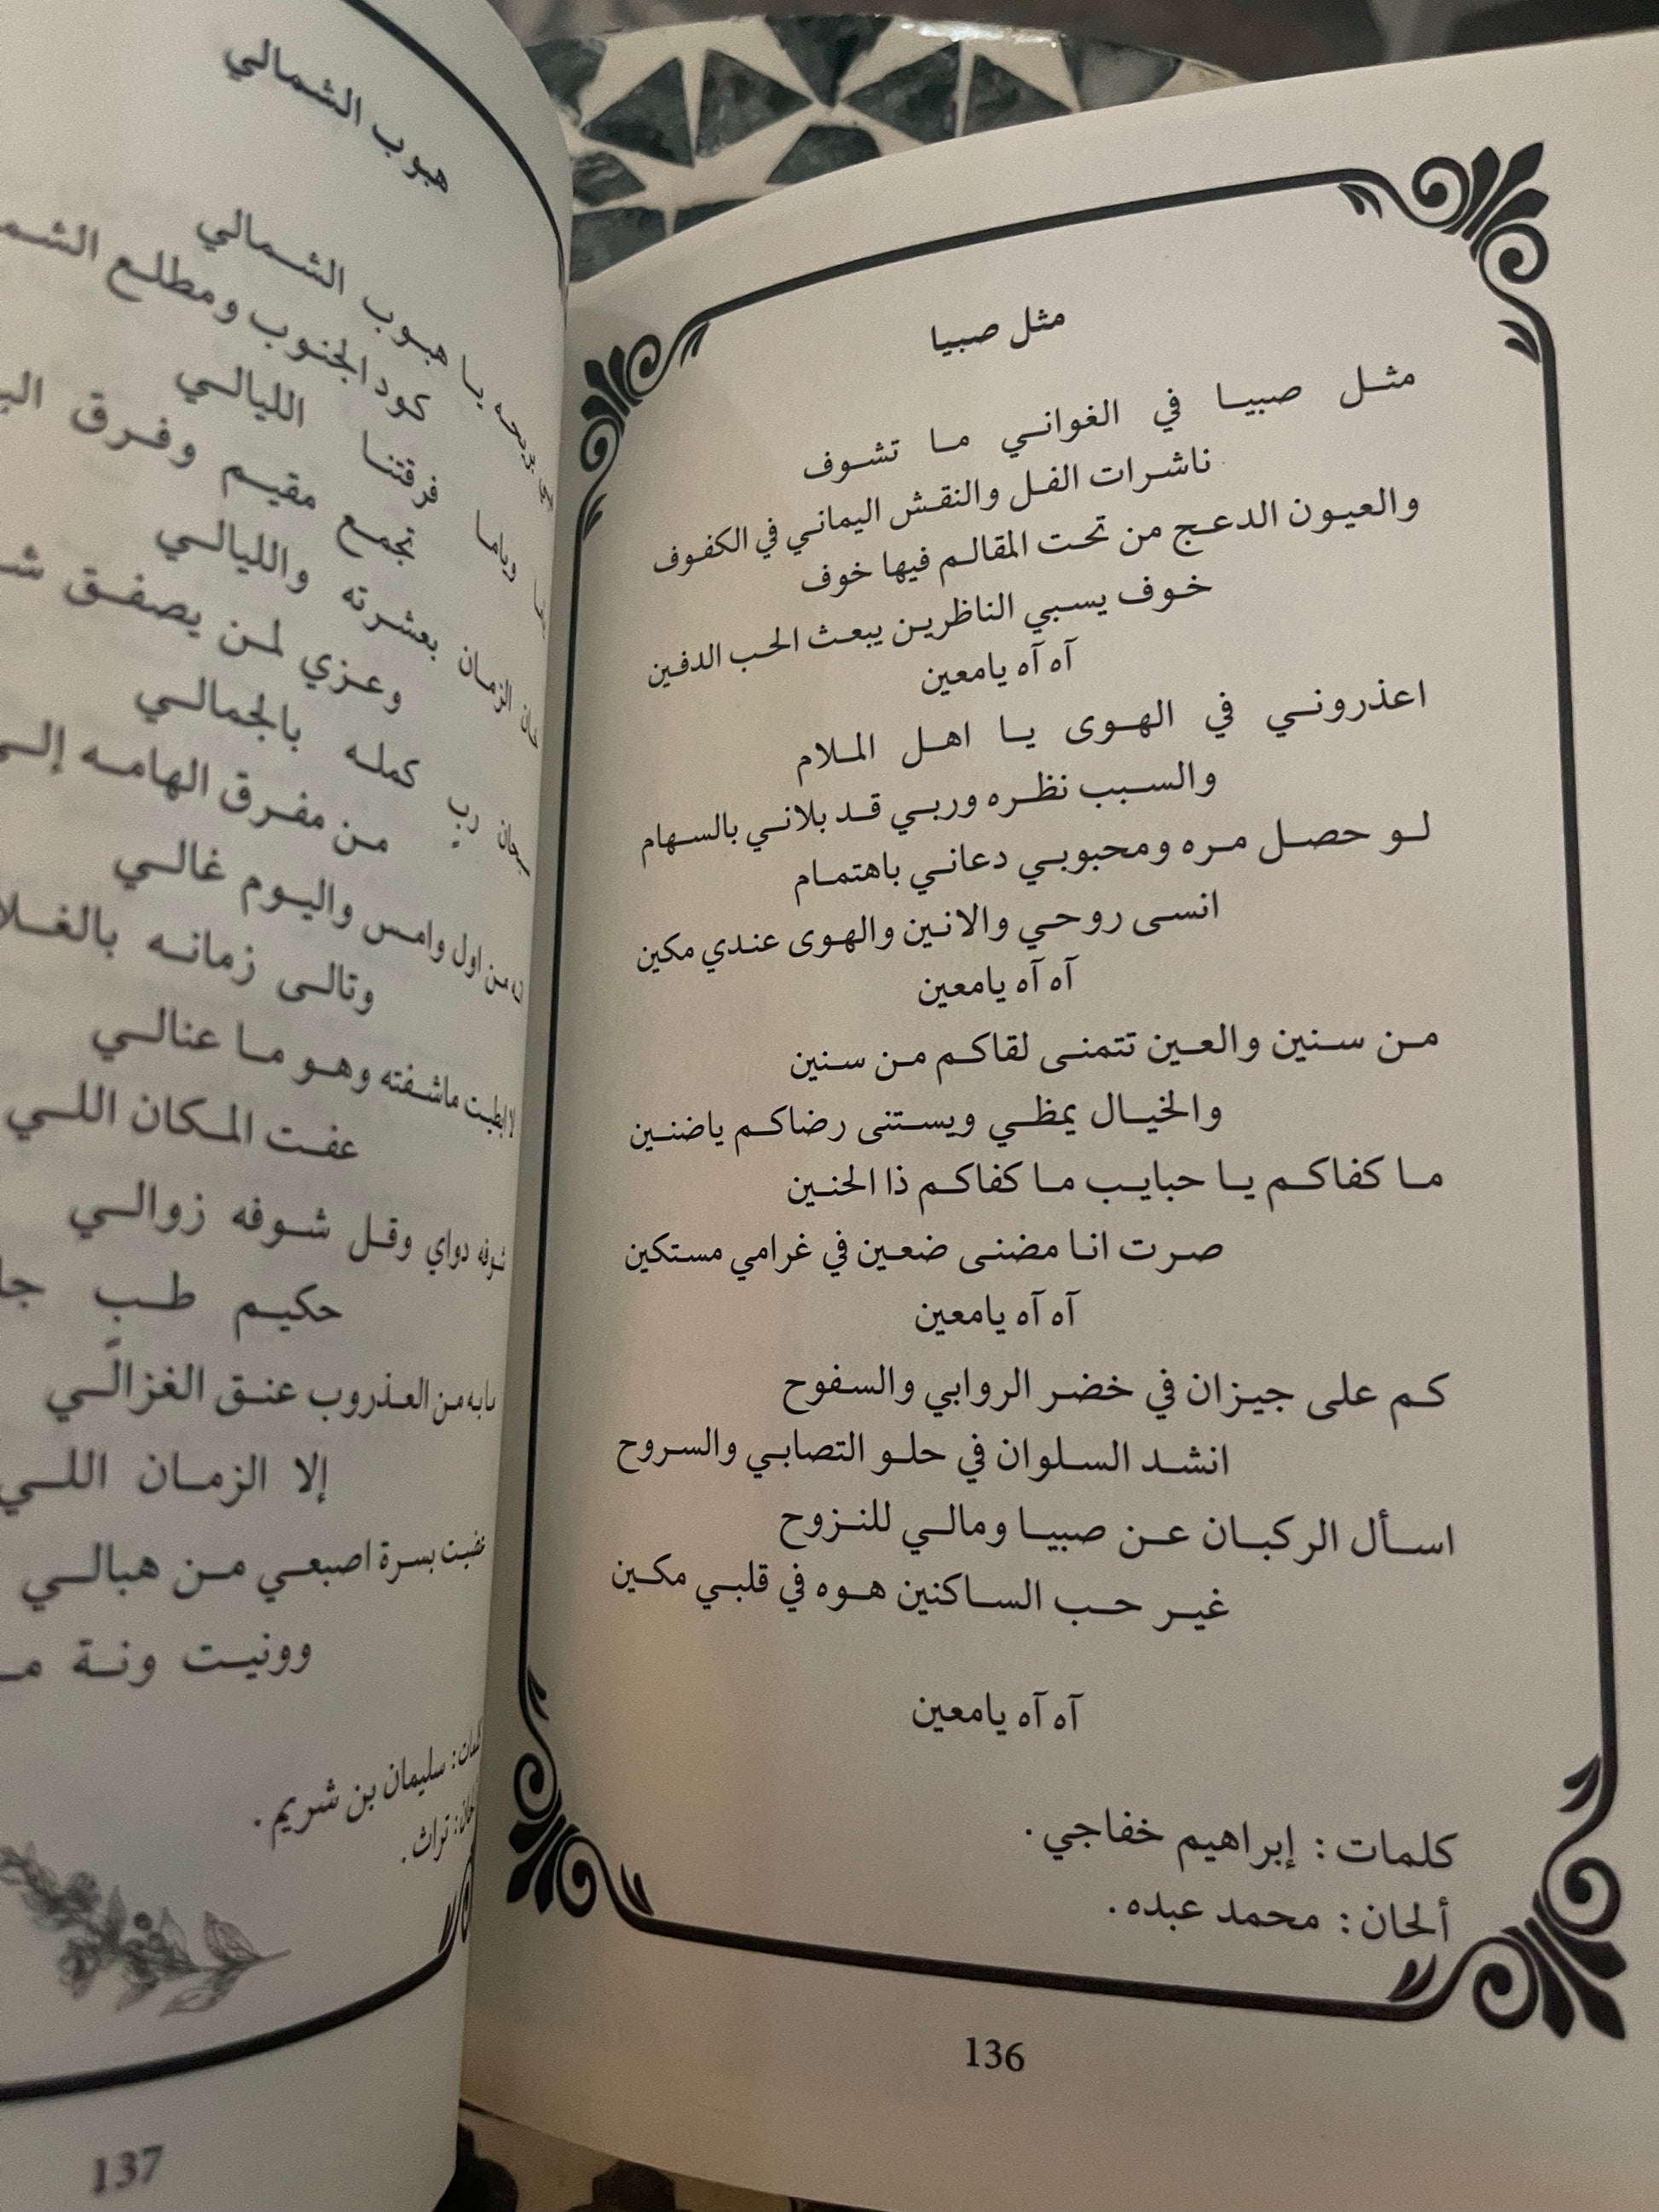 مثل صبيا
مثل صبيا في الغواني ما تشوف
ناشرات الفل والنقش اليماني في الكفوف
والعيون الدعج من تحت المقالم فيها خوف
خوف يسبي الناظرين يبعث الحب الدفين
آه آه يامعين
اعذروني في الهوى يا اهل الملام
والسبب نظره وربي قد بلاني بالسهام
لو حصل مره ومحبوبي دعاني باهتمام
انسى روحي والانين والهوى عندي مكين
آه آه يامعين
من سنين والعين تتمنى لقاكم من سنين
والخيال يمظي ويستنى رضاكم ياضنين
ما كفاكم يا حبايب ما كفاكم ذا الحنين
صرت انا مضنى ضعين في غرامي مستكين
آه آه يامعين
كم على جيزان في خضر الروابي والسفوح
انشد السلوان في حلو التصابي والسروح
اسأل الركبان عن صبيا ومالي للنزوح
غير حب الساكنين هوه في قلبي مكين
آه آه يامعين
كلمات : إبراهيم خفاجي .
ألحان : محمد عبده .
136
هبوب الشمالي
يا هبوب الشمالي
كود الجنوب ومطلع
وياما فرقتنا الليالي
تجمع مقيم وفرق
خان الزمان بعشرته والليالي
وعزي لمن يصفق
سبحان ربٍ كمله بالجمالي
من مفرق الهامه إلى
من اول وامس واليوم غالي
وتالى زمانه
ماشفته وهو ما عنالي
عفت المكان اللي
شوفه دواي وقل شوفه زوالي
حكيم طبٍ
مابه من العذروب عنق الغزالي
إلا الزمان اللي
عضيت بسرة اصبعي من هبالي
وونيت ونة
كلمات : سليمان بن شريم .
ألحان : تراث .
137